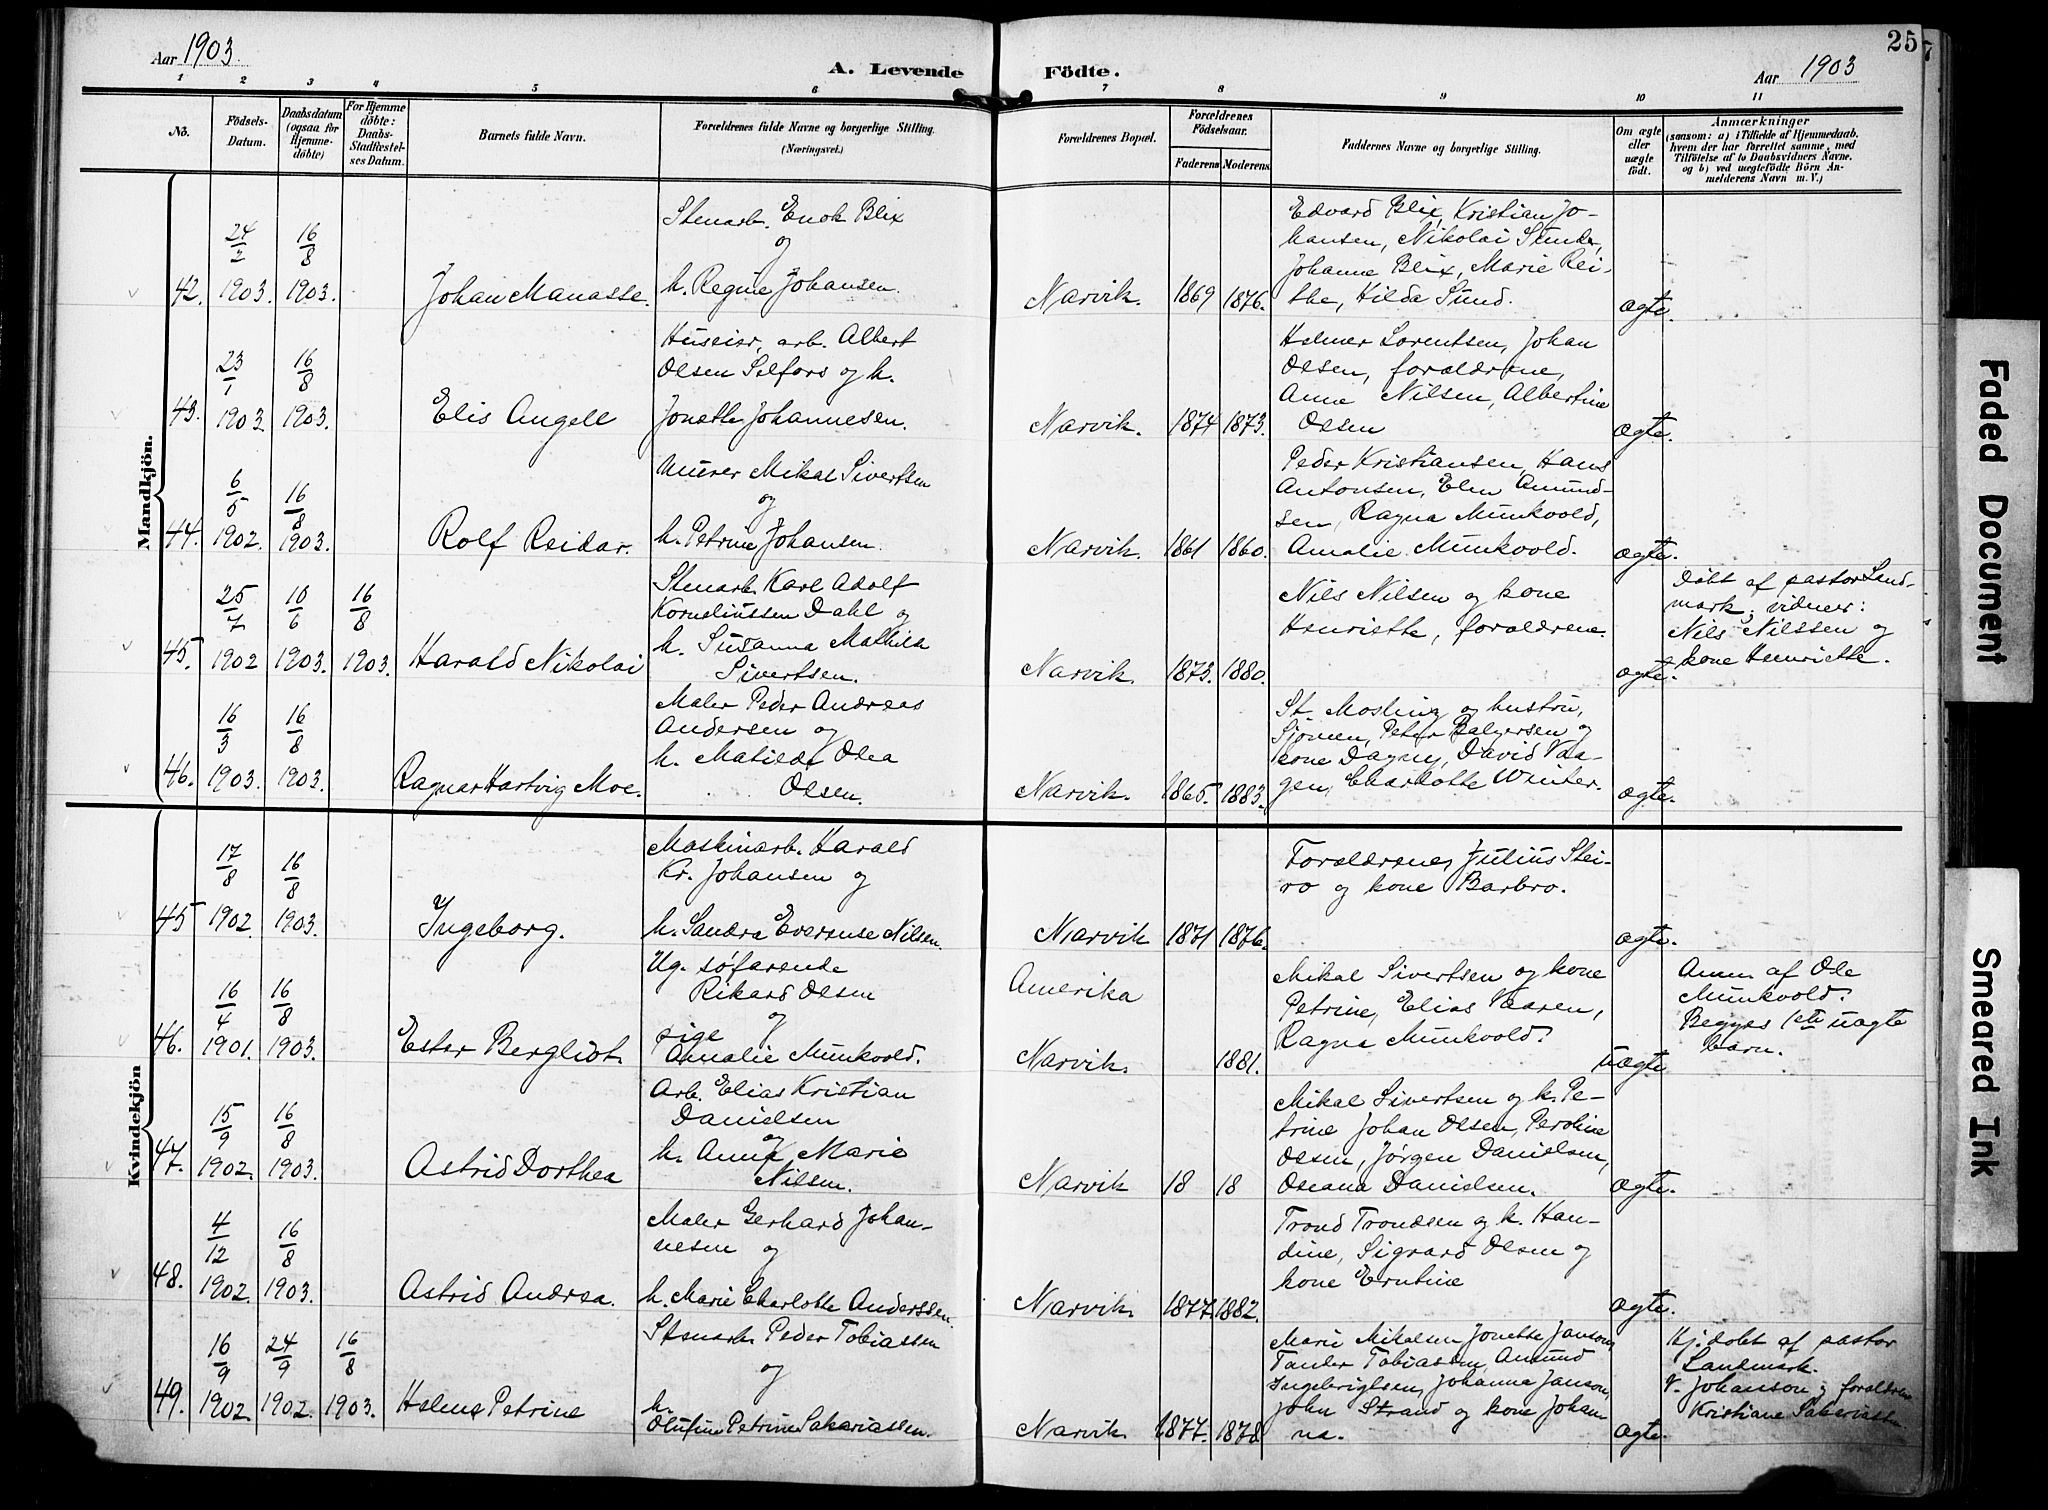 Aar 1903.
A. Levende Födte.
Aar 1903
25
1 2 3 4 5 6 7 8 9 10 11
No.
Födsels-Datum.
Daabsdatum (ogsaa for Hjemme-döbte)
For Hjemme döbte: Daabs-Stadfæstel-ses Datum.
Barnets fulde Navn.
Forældrenes fulde Navne og borgerlige Stilling.
(Næringsvei.)
Forældrenes Bopæl.
Forældrenes Födselsaar.
Faderens Moderens
Faddernes Navne og borgerlige Stilling.
Om ægte eller uægte födt.
Anmærkninger
(saasom: a) i Tilfælde af Hjemmedaab.
hvem der har forrettet samme, med
Tilföielse af to Daabsvidners Navne.
og b) ved uægtefödte Börn An-
melderens Navn m. V.)
Mandkjön.
42. 24/2 1903. 16/8 1903. Johan Manasse.
Stenarb. Enok Blix
og
h. Regine Johansen.
Narvik. 1869 1876.
Edvard Blix, Kristian Jo-
hansen, Nikolai Sunde,
Johanne Blix, Marie Rei-
the, Hilda Sund.
ægte.
43. 23/1 1903. 16/8 1903. Elis Angell
Huseier, arb. Albert
Olsen Selfors og h.
Jonette Johannesen.
Narvik. 1874 1873.
Helmer Lorentsen, Johan
Olsen, forældrene,
Anna Nilsen, Albertine
Olsen
ægte.
44. 6/5 1902. 16/8 1903. Rolf Reidar.
Murer Mikal Sivertsen
og
h. Petrine Johansen.
Narvik. 1861 1860.
Peder Kristiansen, Hans
Antonsen, Elen Amund-
sen, Ragna Munkvold,
Amalie Munkvold.
ægte.
45. 25/7 1902 10/6 1903. 16/8 1903. Harald Nikolai
Stenarb. Karl Adolf
Korneliussen Dahl og
h. Susanna Mathilde
Sivertsen.
Narvik. 1873. 1880.
Nils Nilsen og kone
Henriette, forældrene.
ægte.
Døbt af pastor Land-
mark, vidner:
Nils Nilssen og
kone Henriette.
46. 16/3 1903. 16/8 1903. Ragnar Hartvig Moe.
Maler Peder Andreas
Andersen og
h. Matilde Olea
Olsen.
Narvik. 1865. 1883.
St. Mosling og hustru,
Petter Balgersen og
kone Dagny, David Vaa-
gen, Charlotte Winter.
ægte.
Kvindekjön
45 17/8 1902. 16/8 1903. Ingeborg.
Maskinarb. Harald
Kr. Johansen og
h. Sandra Everense Nilsen.
Narvik 1871 1876.
Forældrene, Julius Stei-
ro og kone Barbro.
ægte.
46. 16/4 1901. 16/8 1903. Ester Bergliot.
Ug. søfarende
Rikard Olsen
og
pige
Amalie Munkvold.
Amerika
Narvik. 1881.
Mikal Sivertsen og kone
Petrine, Elias Vaaren,
Ragna Munkvold.
uægte
Anm. af Ole
Munkvold.
Begges 1ste uægte
barn.
47. 15/9 1902. 16/8 1903. Astrid Dorthea
Arb. Elias Kristian
Danielsen
og
h. Anna Marie
Nilsen.
Narvik 18 18
Mikal Sivertsen og k. Pe-
trine Johan Olsen, Peroline
Olsen, Jørgen Danielsen,
Oseana Danielsen.
ægte.
48. 4/12 1902. 16/8 1903. Astrid Andrea.
Maler Gerhard Johan-
nesen og
h. Marie Charlotte Anderssen.
Narvik. 1877. 1882.
Trond Trondsen og k. Han-
dine, Sigvard Olsen og
kone Erntine
ægte.
49. 16/9 1902. 24/9 1902. 16/8 1903. Helene Petrine
Stenarb. Peder Tobiassen
og
h.
Olufine Petrine Sakariassen.
Narvik. 1877. 1878
Marie Mikalsen, Jonette Janson,
Tobiassen, Amund
Ingebrigtsen, Johanna Janson,
John Strand og kone Johan
na.
ægte.
Hj. døbt af pastor
Landmark.
V. Johanson og forældrene
Kristiane Sakariassen
Faded Document
Smeared Ink